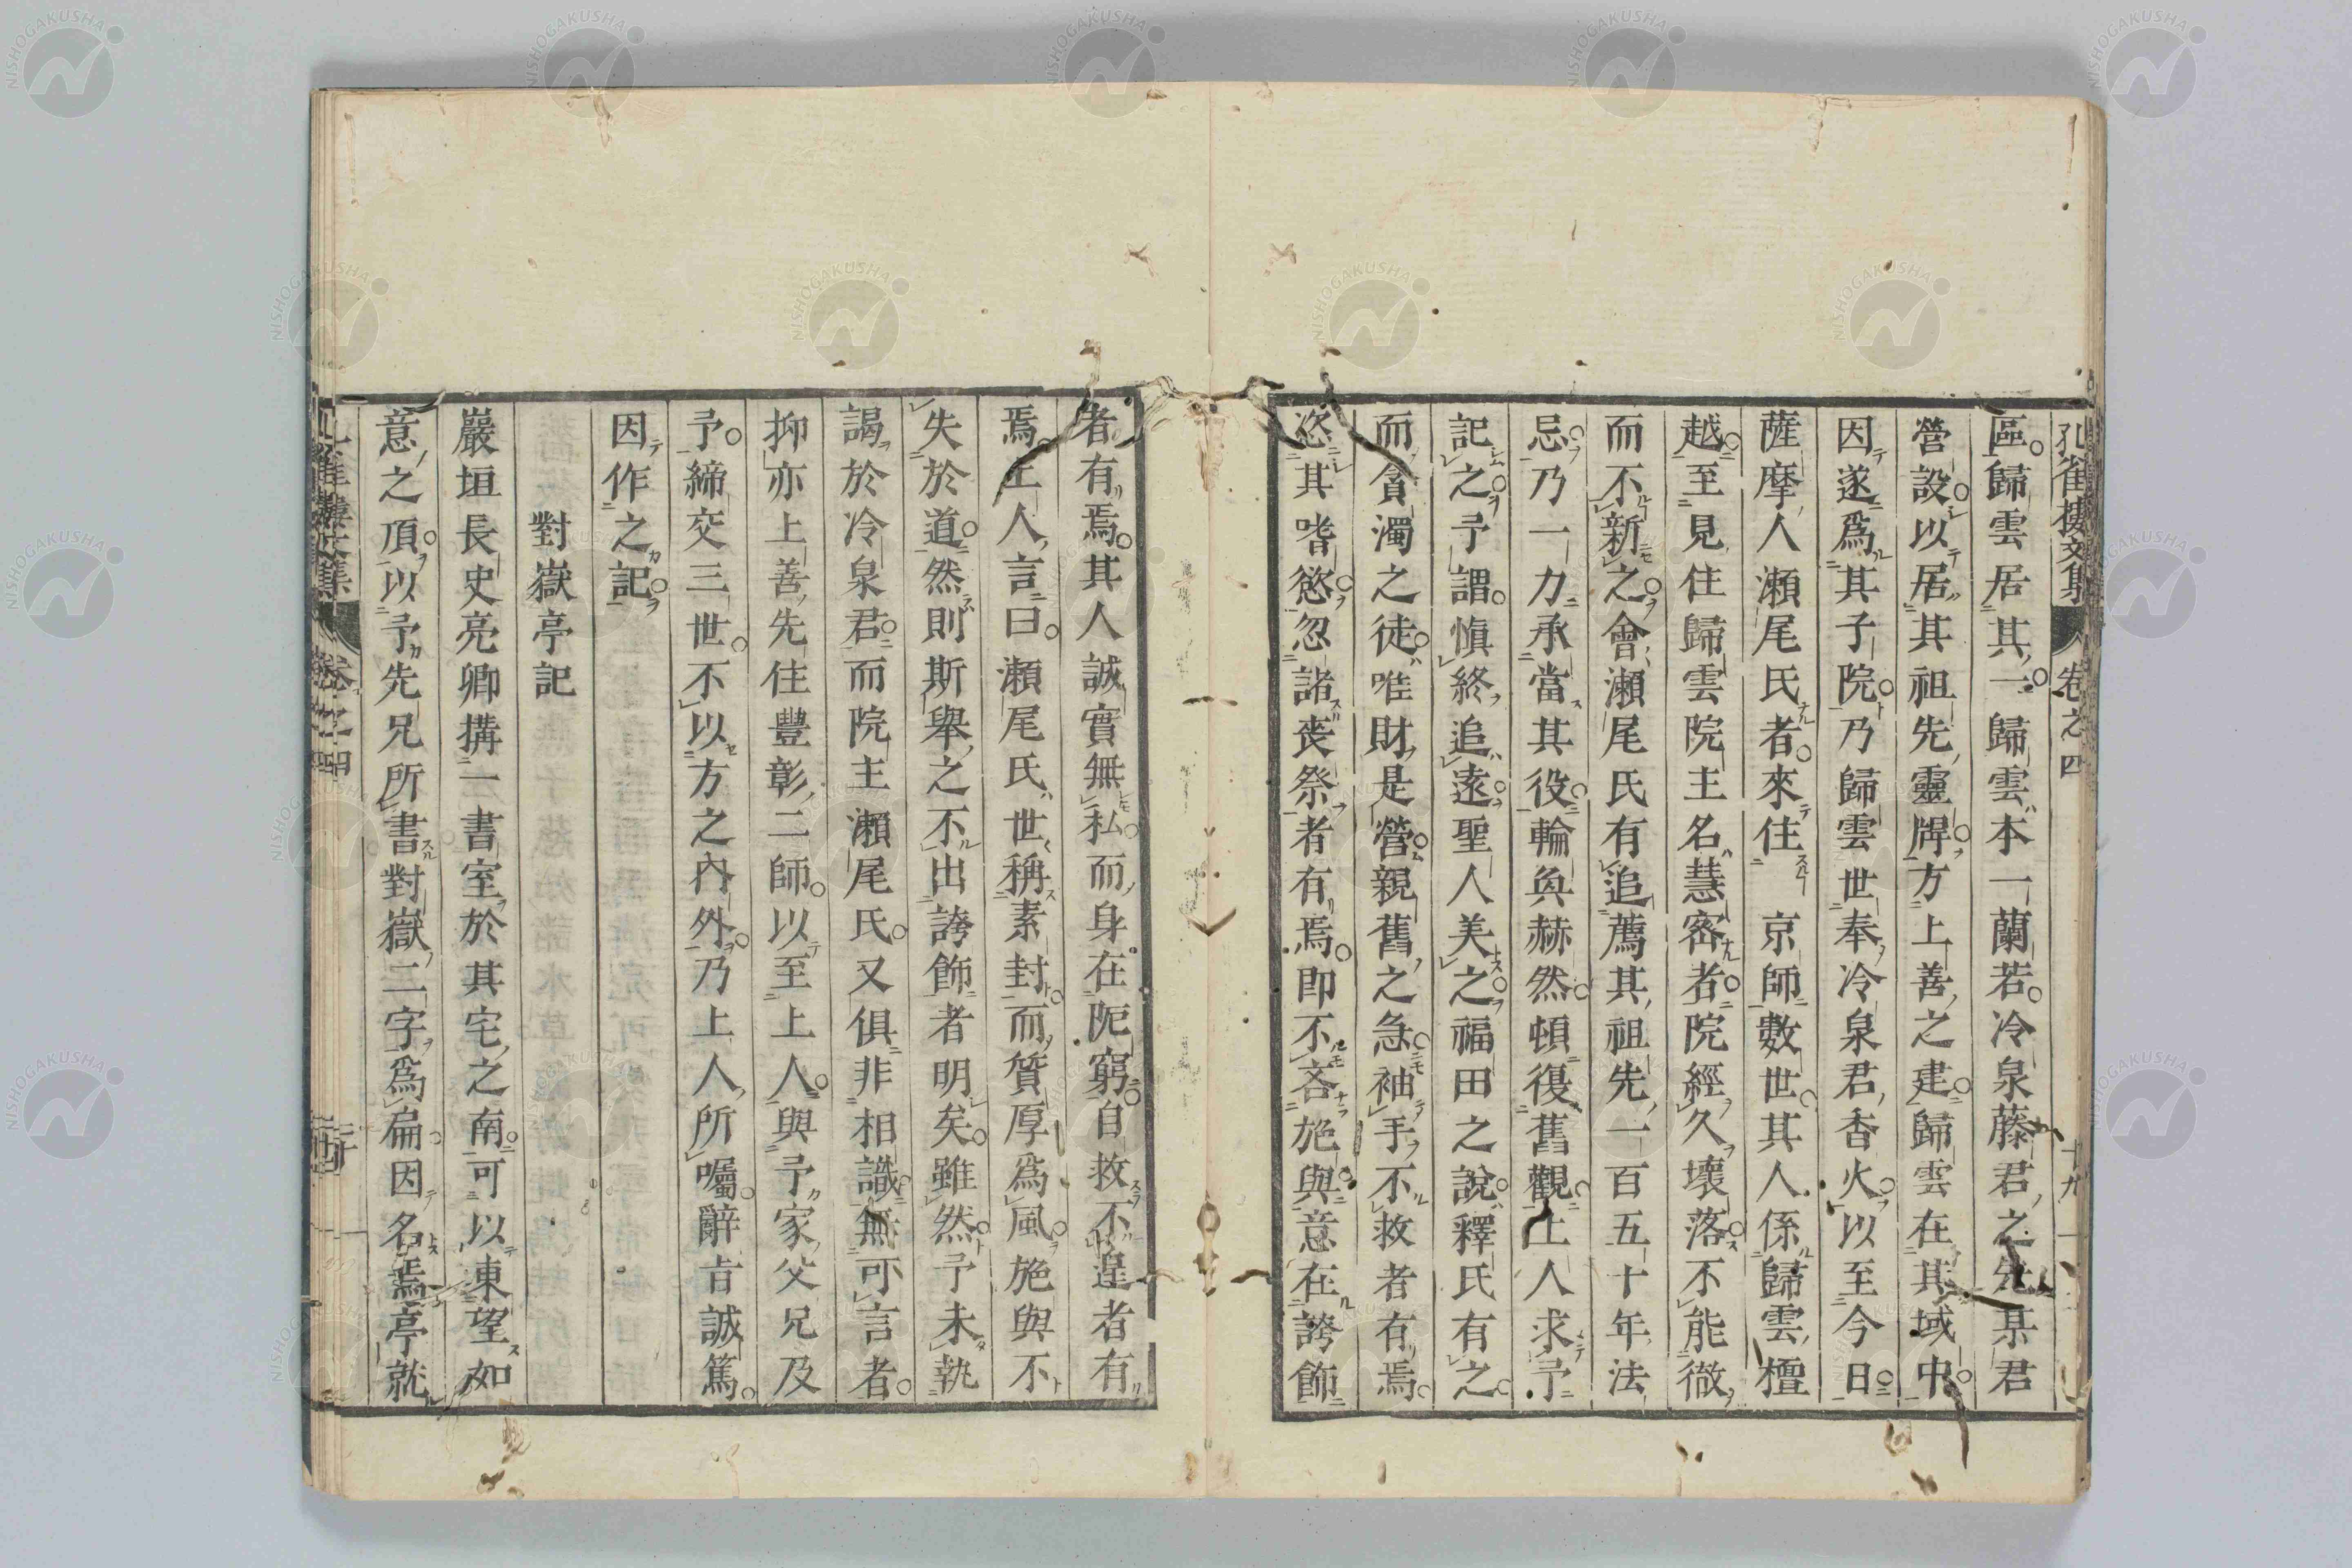 孔雀樓文集 卷之四 十九
區歸雲居其一歸雲本一蘭若冷泉藤君之先某君
營設以居其祖先靈牌方上善之建歸雲在其域中
因遂爲其子院乃歸雲世奉冷泉君香火以至今日
薩摩人瀨尾氏者來住 京師數世其人係歸雲檀
越至見住歸雲院主名慧密者院經久壞落不能徹
而不新之會瀨尾氏有追薦其祖先一百五十年法
忌乃一力承當其役輪奐赫然頓復舊觀上人求予
記之予謂愼終追遠聖人美之福田之說釋氏有之
而貪濁之徒唯財是營親舊之急袖手不救者有焉
恣其嗜慾忽諸喪祭者有焉卽不吝施與意在誇飾
者有焉其人誠實無私而身在阨窮自救不遑者有
焉上人言曰瀨尾氏世稱素封而質厚爲風施與不
失於道然則斯舉之不出誇飾者明矣雖然予未執
謁於冷泉君而院主瀨尾氏又俱非相識無可言者
抑亦上善先住豐彰二師以至上人與予家父兄及
予締交三世不以方之內外乃上人所囑辭旨誠篤
因作之記
對嶽亭記
巖垣長史亮卿搆一書室於其宅之南可以東望如
意之頂以予先兄所書對嶽二字爲扁因名焉亭就
孔雀樓文集 卷之四